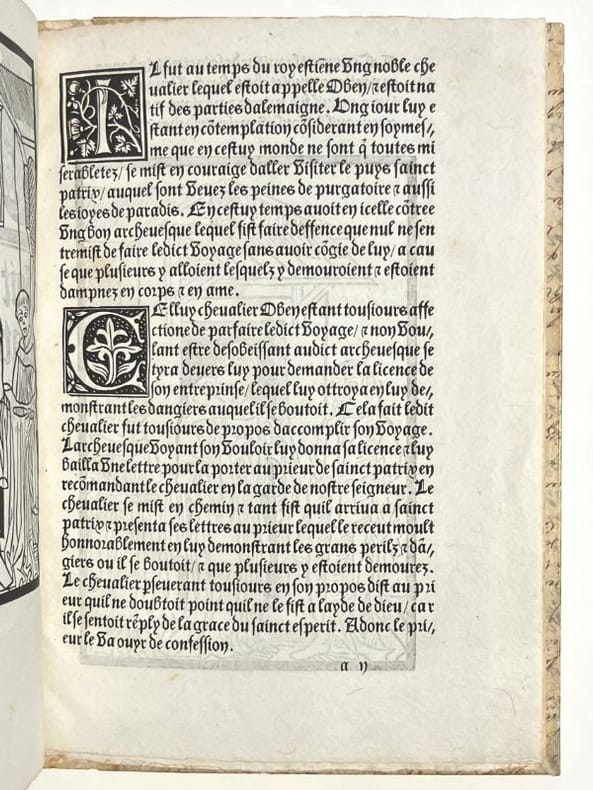 IL fut au temps du roy estiēne vng noble che
ualier lequel estoit appelle Oben/ ⁊ estoit na
tif des parties dalemaigne. Ung iour luy e
stant en cōtemplation cōsiderant en soymes/,
me que en cestuy monde ne sont q̄ toutes mi
serabletez/ se mist en couraige daller visiter le puys sainct
patrix/ auquel sont veuez les peines de purgatoire ⁊ aussi
les ioyes de paradis. En cestuy temps auoit en icelle cōtree
vng bon archeuesque lequel fist faire deffence que nul ne sen
tremist de faire ledict voyage sans auoir cōgie de luy/ a cau
se que plusieurs y alloient lesquelz y demouroient ⁊ estoient
dampnez en corps ⁊ en ame.
CElluy cheualier Oben estant tousiours affe
ctione de parfaire ledict voyage/ ⁊ non vou/,
lant estre desobeissant audict archeuesque se
tyra deuers luy pour demander la licence de
son entreprinse/ lequel luy ottroya en luy de/,
monstrant les dangiers auquel il se boutoit. Cela fait ledit
cheualier fut tousiours de propos daccomplir son voyage.
Larcheuesque voyant son vouloir luy donna sa licence ⁊ luy
bailla vne lettre pour la porter au prieur de sainct patrix en
recōmandant le cheualier en la garde de nostre seigneur. Le
cheualier se mist en chemin ⁊ tant fist quil arriua a sainct
patrix ⁊ presenta ses lettres au prieur lequel le receut moult
honnorablement en luy demonstrant les grans perilz ⁊ dā/,
giers ou il se boutoit/ ⁊ que plusieurs y estoient demourez.
Le cheualier ꝑseuerant tousiours en son propos dist au pri
eur quil ne doubtoit point quil ne le fist a layde de dieu/ car
il se sentoit rēply de la grace du sainct esperit. Adonc le pri/,
eur le va ouyr de confession.
a ij